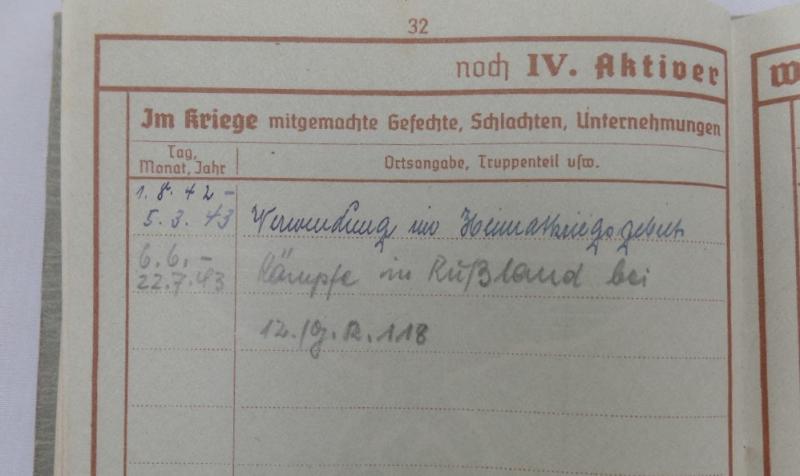 32
noch IV. Aktiver
W
Im Kriege mitgemachte Gefechte, Schlachten, Unternehmungen
Tag, Monat, Jahr
Ortsangabe, Truppenteil usw.
1. 8. 42 –
5. 3. 43 Verwendung im Heimatkriegsgebiet
6. 6. –
22. 7. 43 Kämpfe in Rußland bei
12./G.R. 118